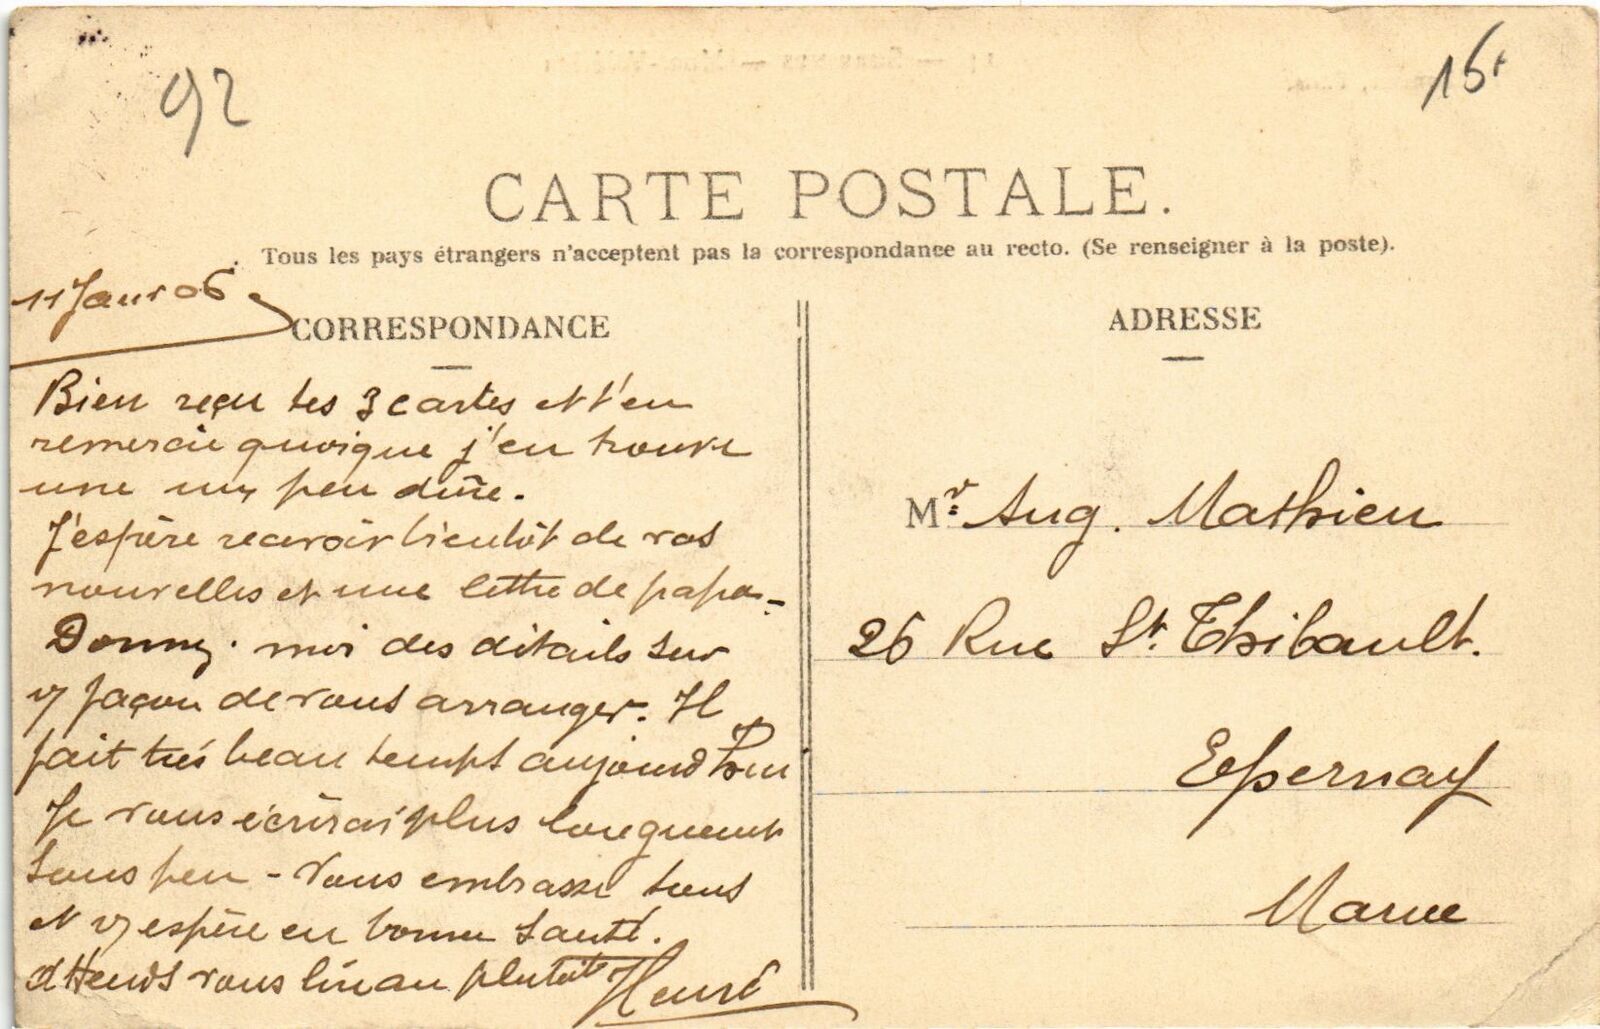 92
15f
CARTE POSTALE.
Tous les pays étrangers n'acceptent pas la correspondance au recto. (Se renseigner à la poste).
11 Janv 06
CORRESPONDANCE
Bien reçu tes 3 cartes et t'en
remercie quoique j'en trouve
une un peu dure.
J'espère recevoir bientôt de vos
nouvelles et une lettre de papa -
Donnez-moi des détails sur
façon de vous arranger. Il
fait très beau temps aujourd'hui
Je vous écrirai plus longuement
sous peu - Vous embrasse tous
et vs espère en bonne santé.
attends vous lire au plutôt Henri
ADRESSE
Mr Aug. Mathieu
26 Rue St. Thibault.
Epernay
Marne